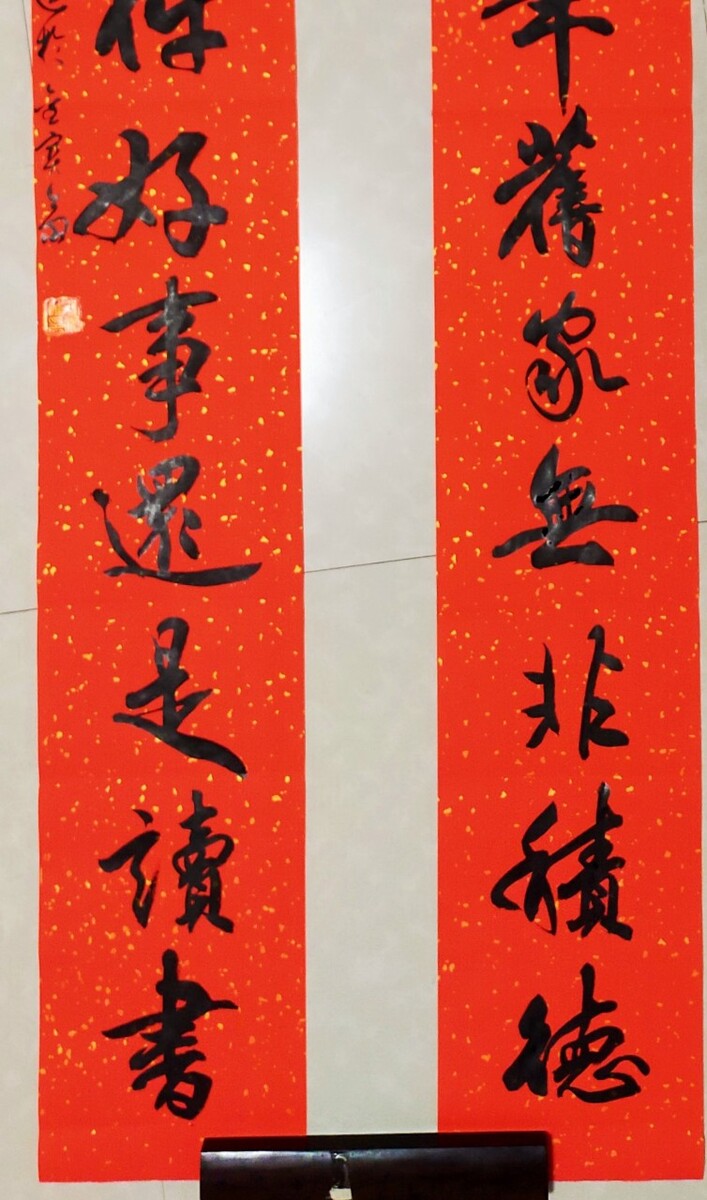 年舊家無非積德
件好事還是讀書